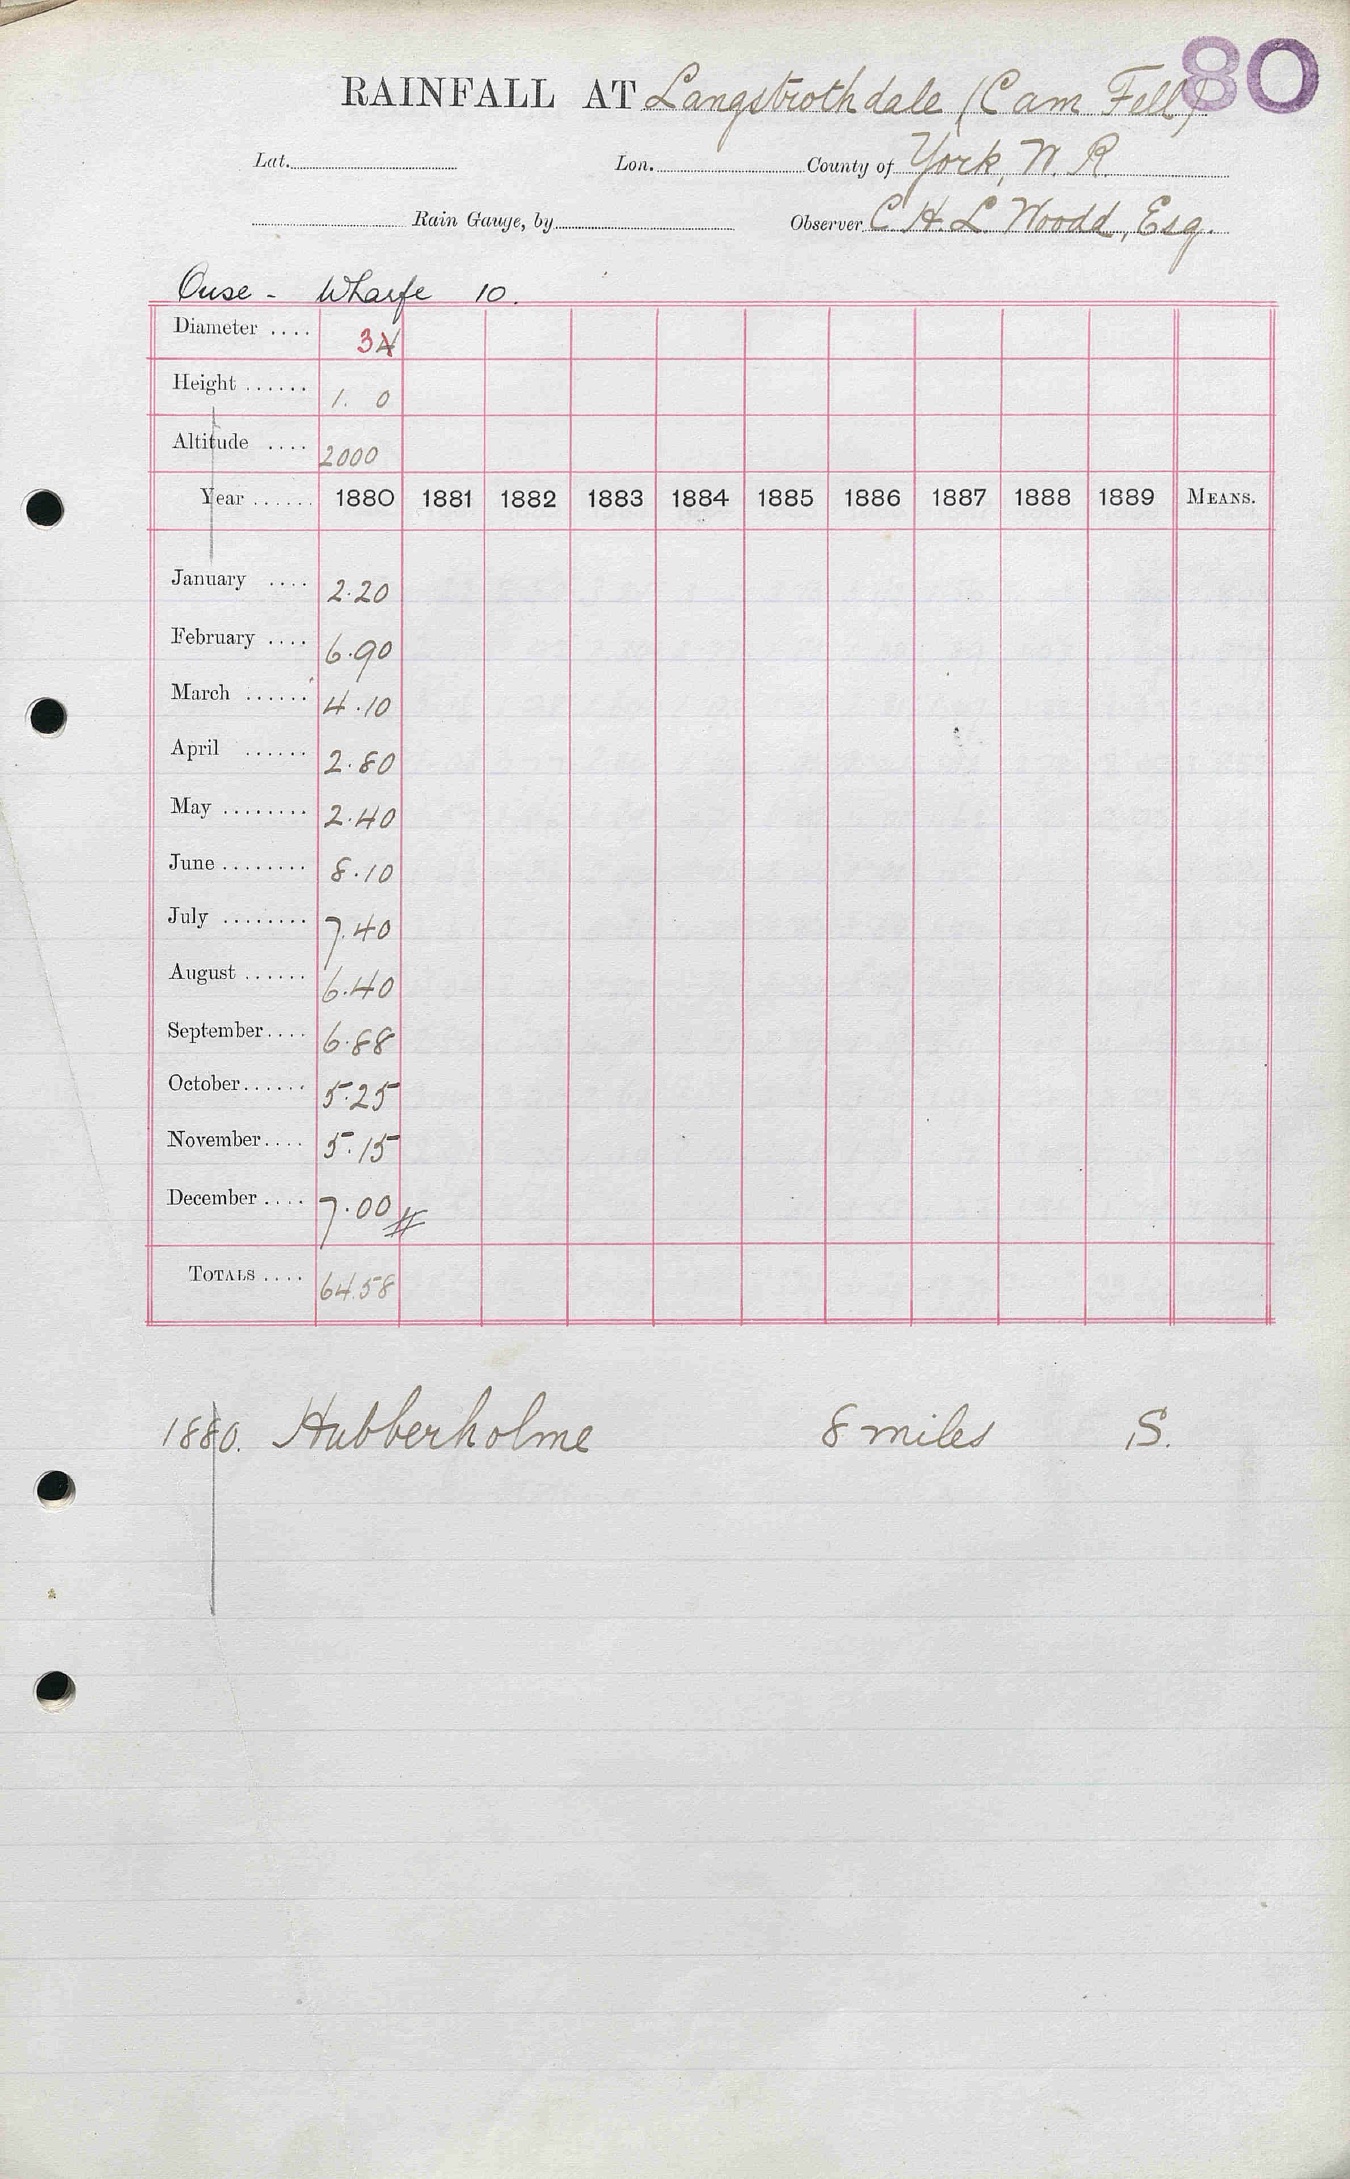 80
RAINFALL AT Langstrothdale (Cam Fell)
Lat. Lon. County of York, W. R.
Rain Gauge, by Observer C. H. L. Woodd, Esq.
Ouse - Wharfe 10.
Diameter .... 3 4
Height ...... 1. 0
Altitude .... 2000
Year ...... 1880 1881 1882 1883 1884 1885 1886 1887 1888 1889 MEANS.
January .... 2.20
February .... 6.90
March ...... 4.10
April ...... 2.80
May ........ 2.40
June ........ 8.10
July ........ 7.40
August ...... 6.40
September.... 6.88
October...... 5.25
November.... 5.15
December .... 7.00 #
TOTALS .... 64.58
1880. Hubberholme 8 miles S.